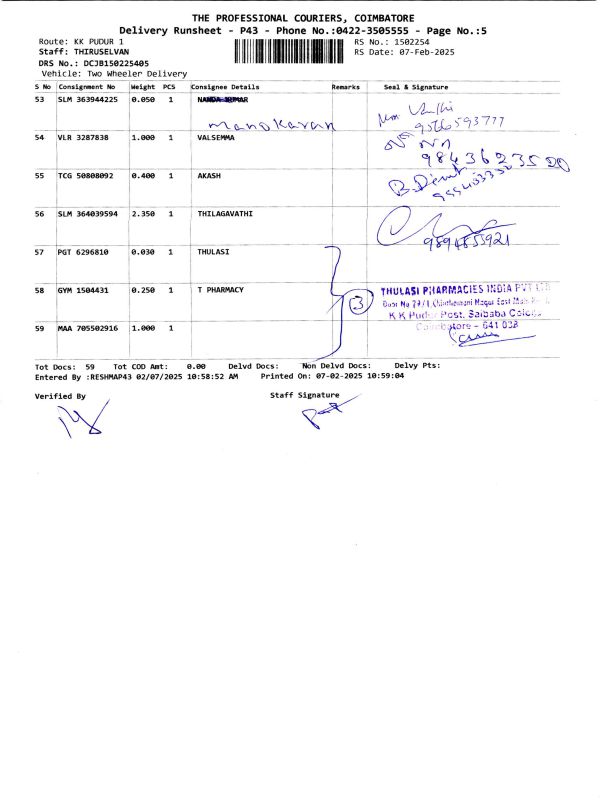 THE PROFESSIONAL COURIERS, COIMBATORE
Delivery Runsheet - P43 - Phone No.:0422-3505555 - Page No.:5
Route: KK PUDUR 1 RS No.: 1502254
Staff: THIRUSELVAN RS Date: 07-Feb-2025
DRS No.: DCJB150225405
Vehicle: Two Wheeler Delivery
S No Consignment No Weight PCS Consignee Details Remarks Seal & Signature
53 SLM 363944225 0.050 1 NANDA KUMAR
manokaran
9566593777
54 VLR 3287838 1.000 1 VALSEMMA
9843623520
55 TCG 50808092 0.400 1 AKASH
56 SLM 364039594 2.350 1 THILAGAVATHI
9894855921
57 PGT 6296810 0.030 1 THULASI
58 GYM 1504431 0.250 1 T PHARMACY
3
THULASI PHARMACIES INDIA PVT LTD
K K Pudur Post, Saibaba Colony
Coimbatore - 641 038
59 MAA 705502916 1.000 1
Tot Docs: 59 Tot COD Amt: 0.00 Delvd Docs: Non Delvd Docs: Delvy Pts:
Entered By :RESHMAP43 02/07/2025 10:58:52 AM Printed On: 07-02-2025 10:59:04
Verified By Staff Signature